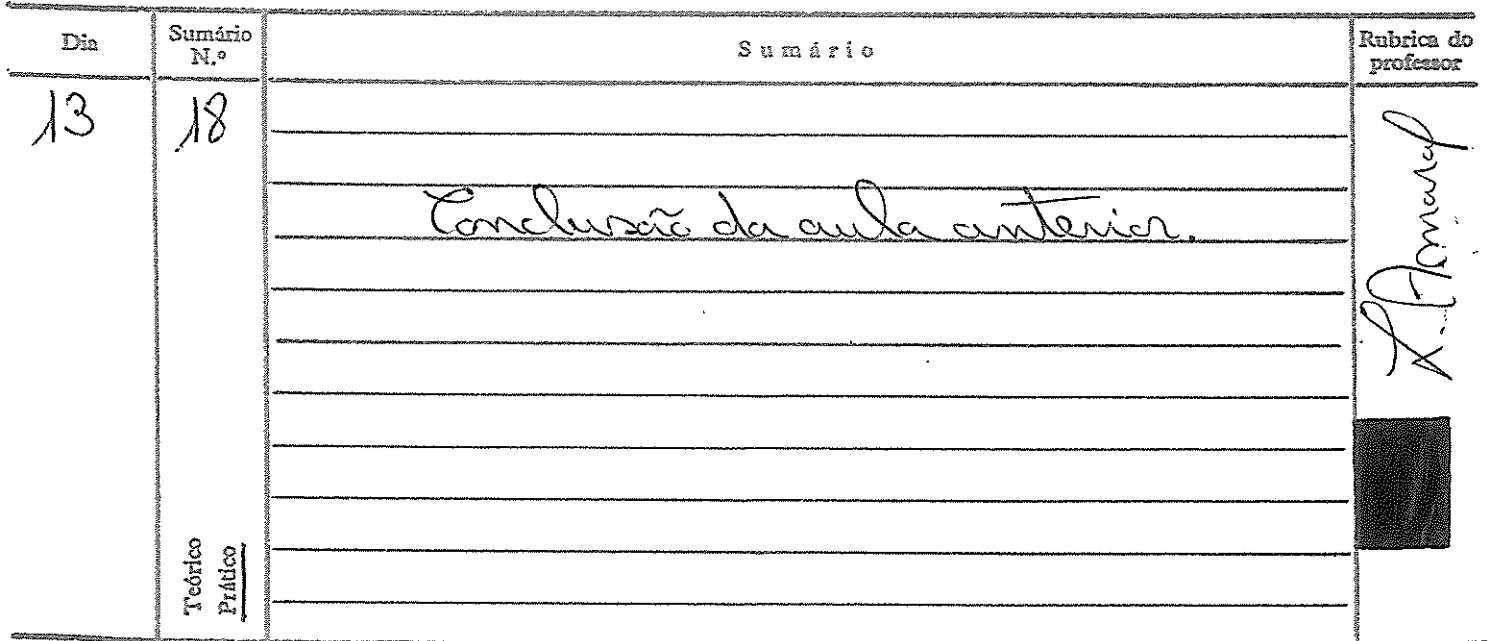 Dia
Sumário
N.º
Sumário
Rubrica do
professor
13
18
Conclusão da aula anterior.
Amaral
Teórico
Prático